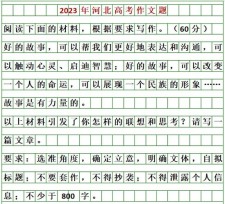 2023年河北高考作文题
阅读下面的材料，根据要求写作。（60分）
好的故事，可以帮我们更好地表达和沟通，可
以触动心灵、启迪智慧；好的故事，可以改变
一个人的命运，可以展现一个民族的形象……
故事是有力量的。
以上材料引发了你怎样的联想和思考？请写一
篇文章。
要求：选准角度，确定立意，明确文体，自拟
标题；不要套作，不得抄袭；不得泄露个人信
息；不少于800字。